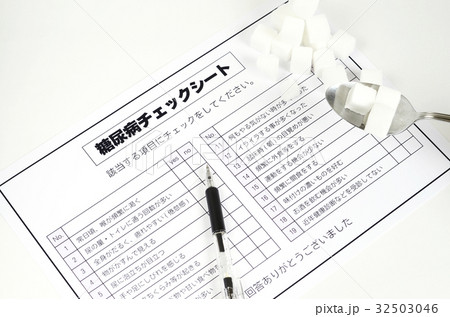 糖尿病チェックシート
該当する項目にチェックをしてください。
No. yes no
1 常日頃、喉が頻繁に渇く
2 尿の量・トイレに通う回数が多い
3 全身がだるく、疲れやすい(倦怠感)
4 物がかすんで見える
5 尿に泡立ちが目立つ
手や足にしびれを感じる
No.
11 何もやる気がない時が多
12 イライラする事が多くなった
の目覚めが悪い
14 頻繁に外食をする
15 運動をする機会が少ない
16 頻繁に間食をする
17 味付けの濃いものを好む
18 お酒を飲む機会が多い
19 近年健康診断などを受診してない
回答ありがとうございました
32503046